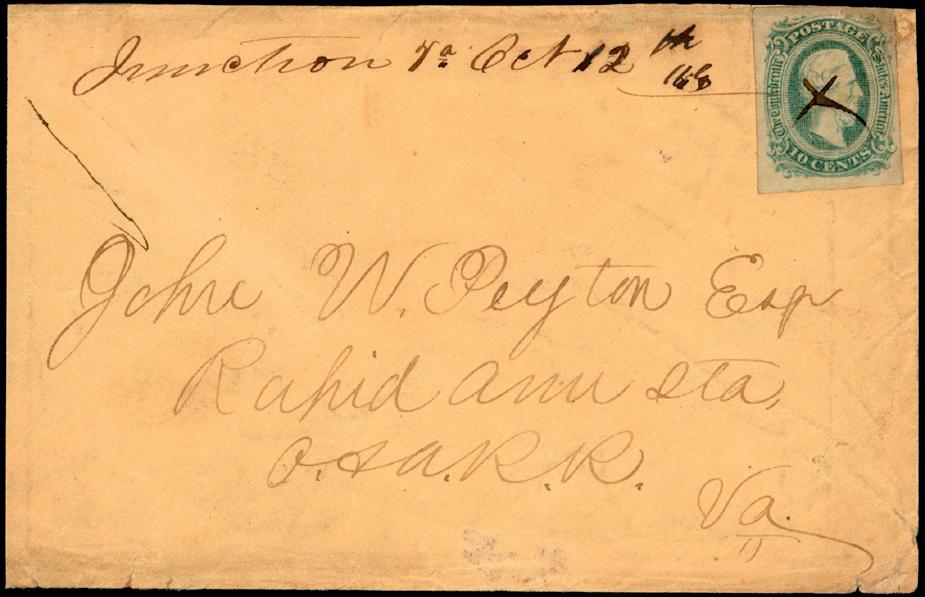 Junction Va Oct 12th
POSTAGE
The Confederate States of America
10 CENTS
John W. Peyton Esq
Rapid Ann Sta,
O. & A. R. R.
Va.